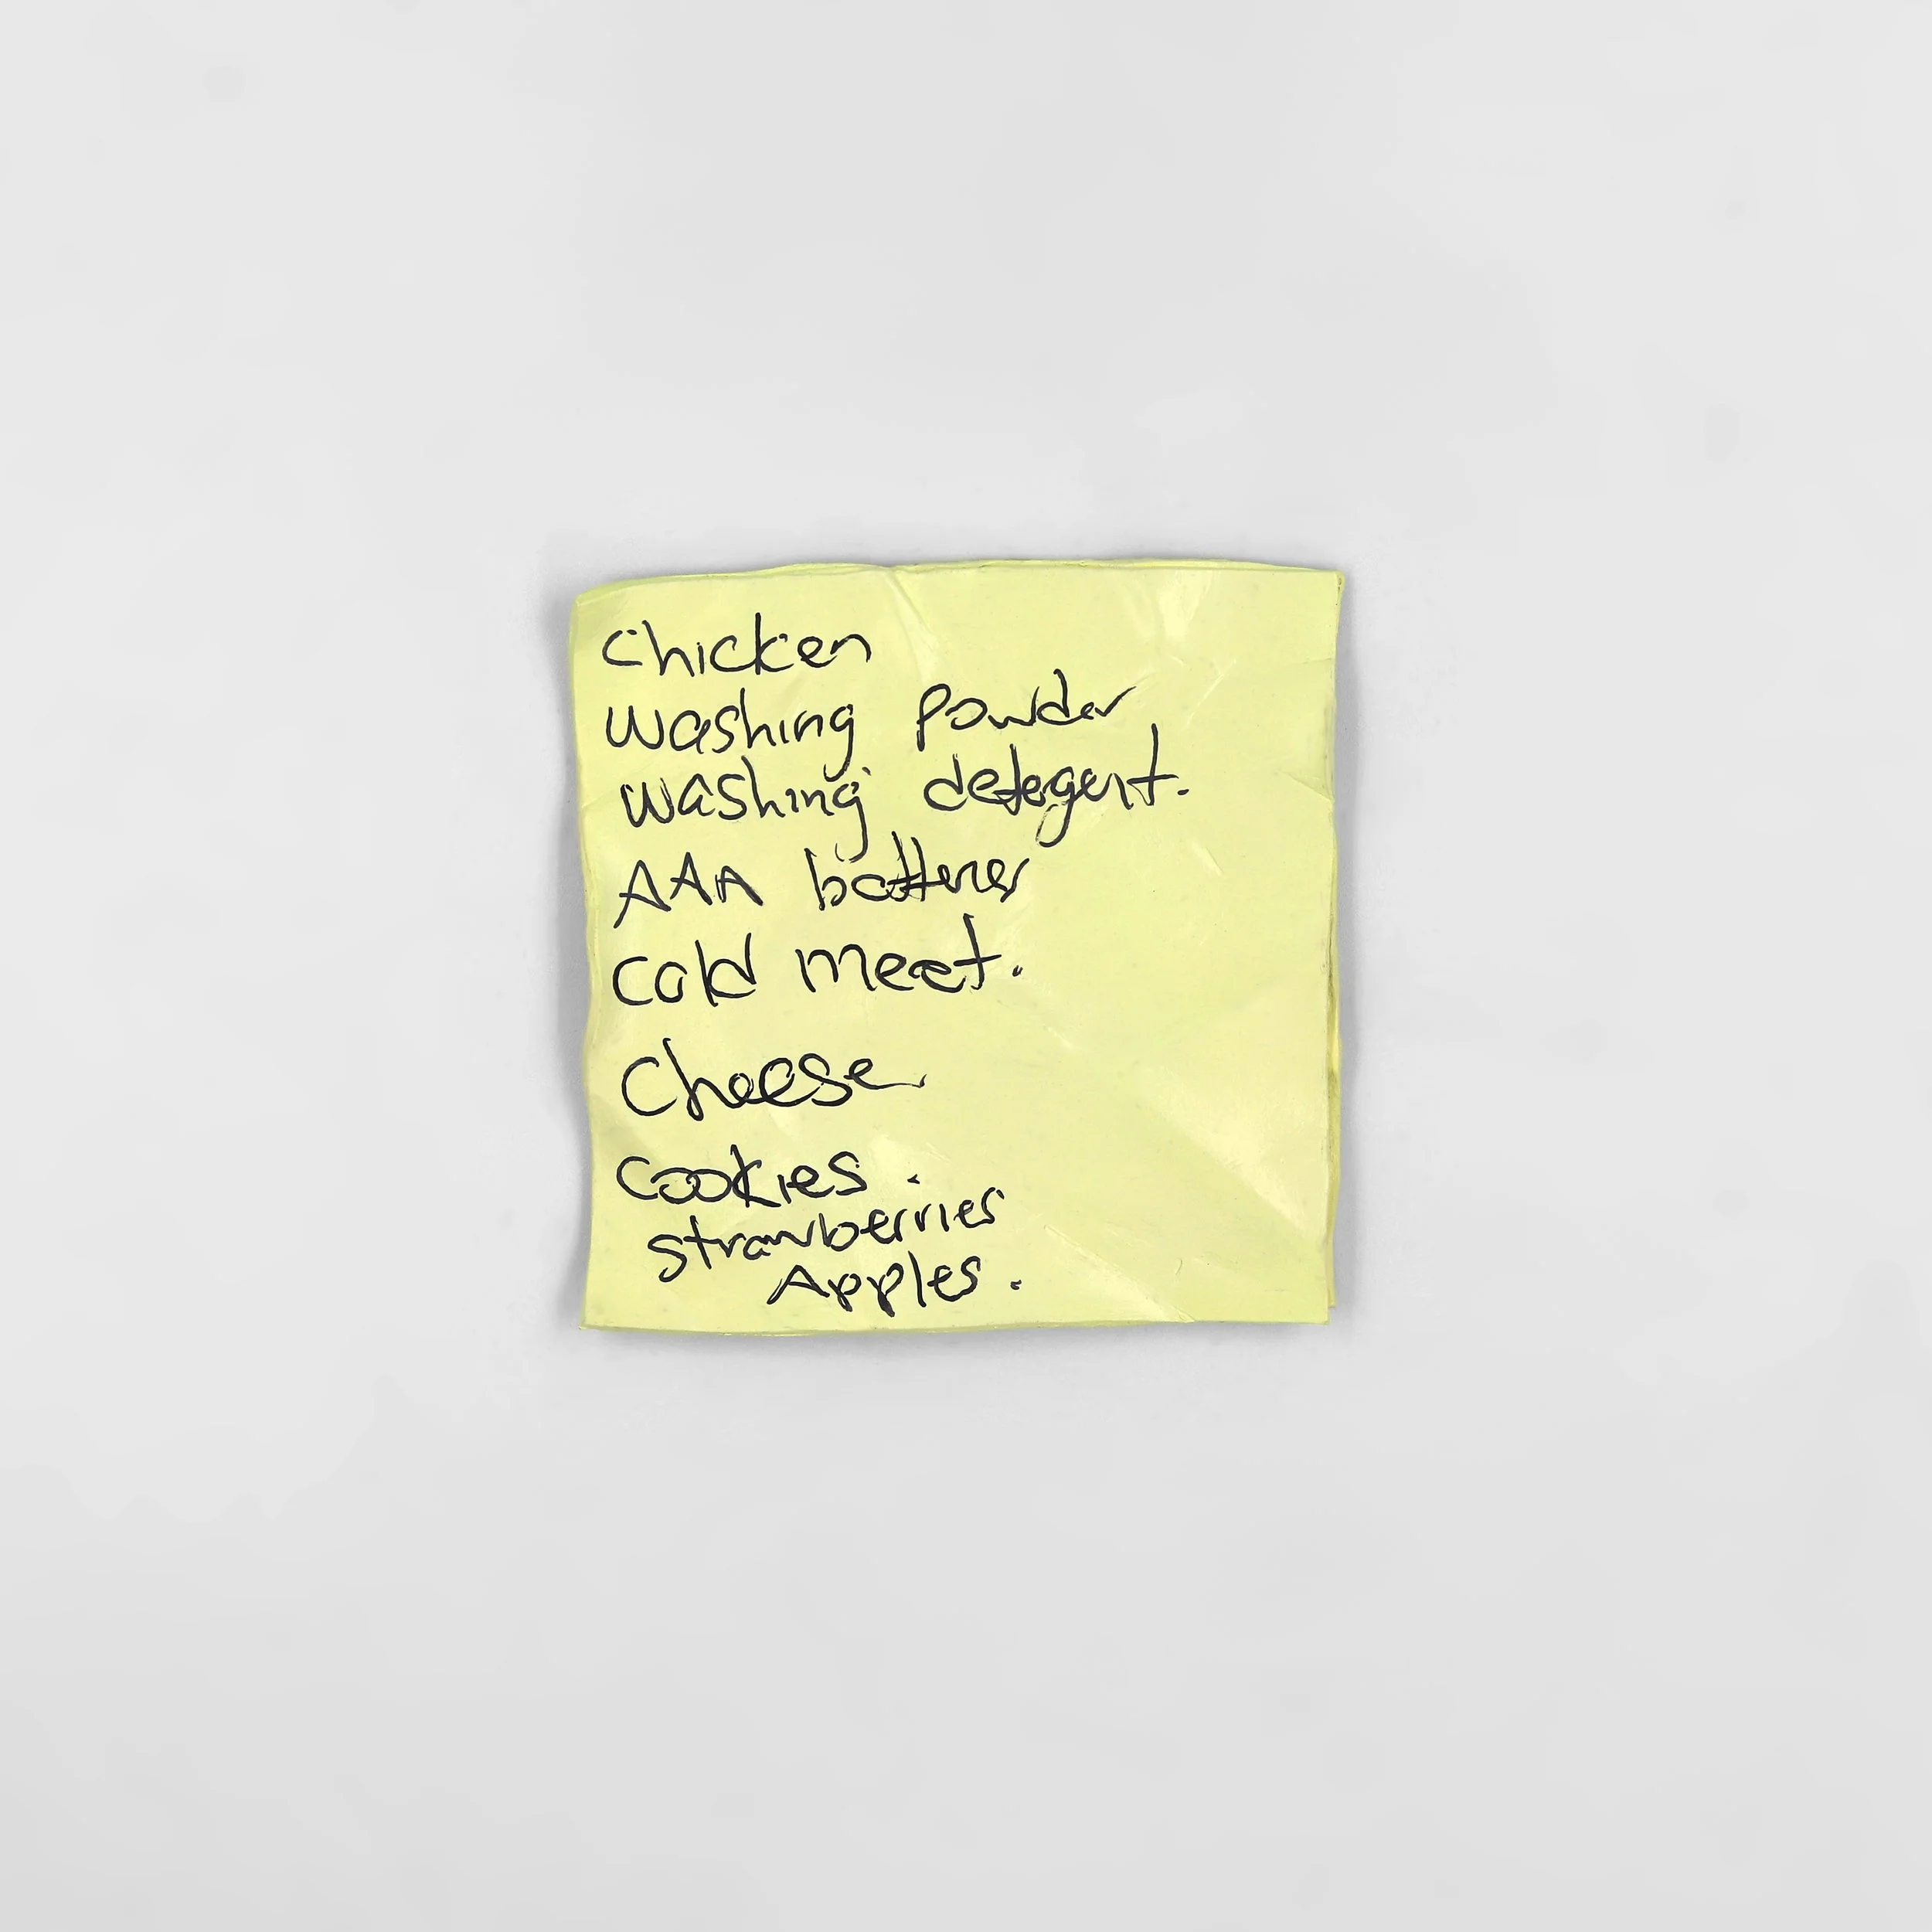 Chicken
Washing Powder
Washing detegent.
AAA batteries
Cold meet.
Cheese
Cookies.
strawberries
Apples.